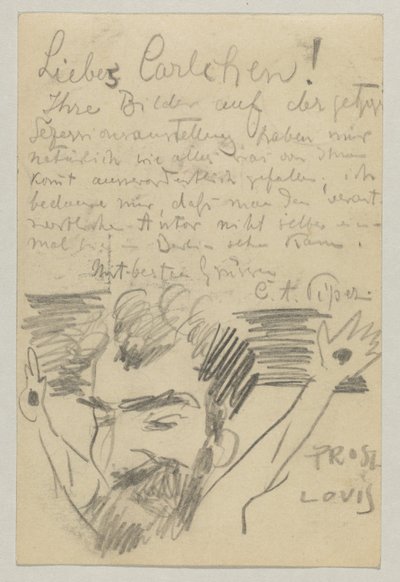 Liebes Carlchen!
Ihre Bilder auf der jetzigen
Sezessionsausstellung haben mir
natürlich wie alles was von Ihnen
komt ausserordentlich gefallen, ich
bedaure nur, daß man den verant-
wortlichen Autor nicht selber ein-
mal hier in Berlin sehen kann.
Mit besten Grüssen
C. A. Piper
PROST
LOVIS